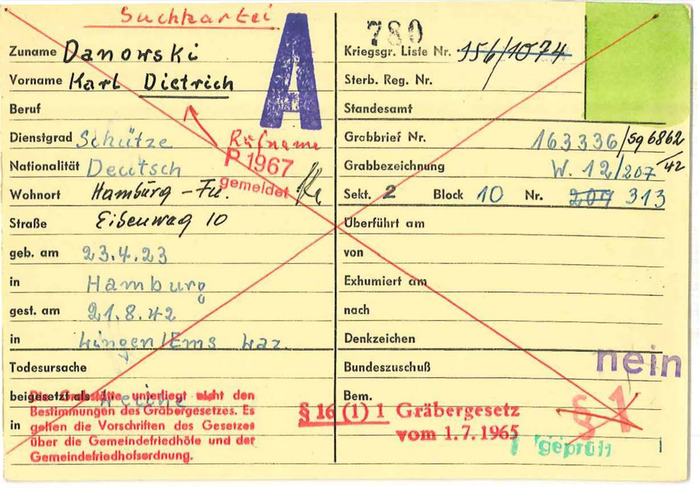 Suchkartei
Zuname Danowski
Vorname Karl Dietrich
Beruf
Dienstgrad Schütze
Rufname
Nationalität Deutsch
P 1967
gemeldet
Wohnort Hamburg - Fu.
Straße Eibenweg 10
geb. am 23.4.23
in Hamburg
gest. am 21.8.42
in Lingen/Ems Laz.
Todesursache
beigesetzt als Leiche
in
Die Grabstätte unterliegt nicht den
Bestimmungen des Gräbergesetzes. Es
gelten die Vorschriften des Gesetzes
über die Gemeindefriedhöfe und der
Gemeindefriedhofsordnung.
A
780
Kriegsgr. Liste Nr. 156/1074
Sterb. Reg. Nr.
Standesamt
Grabbrief Nr. 163336/Sg 6862/42
Grabbezeichnung W. 12/207
Sekt. 2 Block 10 Nr. 209 313
Überführt am
von
Exhumiert am
nach
Denkzeichen
Bundeszuschuß nein
Bem.
§ 16 (1) 1 Gräbergesetz
vom 1.7.1965
§ 1
geprüft